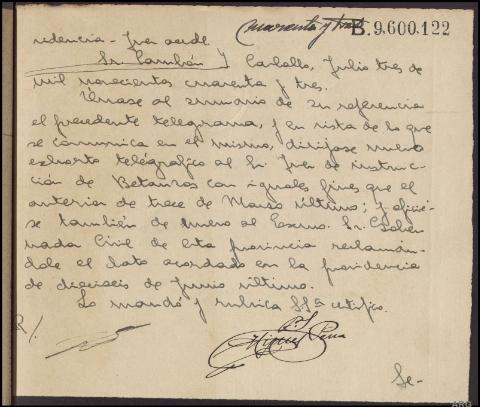 cuarenta y tres B.9.600.122
videncia - Juez accdl.
Sr. Cambón } Carballo, Julio tres de
mil novecientos cuarenta y tres.
Únase al sumario de su referencia
el precedente telegrama, y en vista de lo que
se comunica en el mismo, dirijase nuevo
exhorto telégrafico al Sr. Juez de instruc-
ción de Betanzos con iguales fines que el
anterior de trece de Marzo último; y oficie-
se también de nuevo al Excmo. Sr. Gober-
nador Civil de esta provincia reclamán-
dole el dato acordado en la providencia
de dieciseis de Junio último.
Lo mandó y rubrica SSª certifico.
R/.
Miguel Pena
Se-